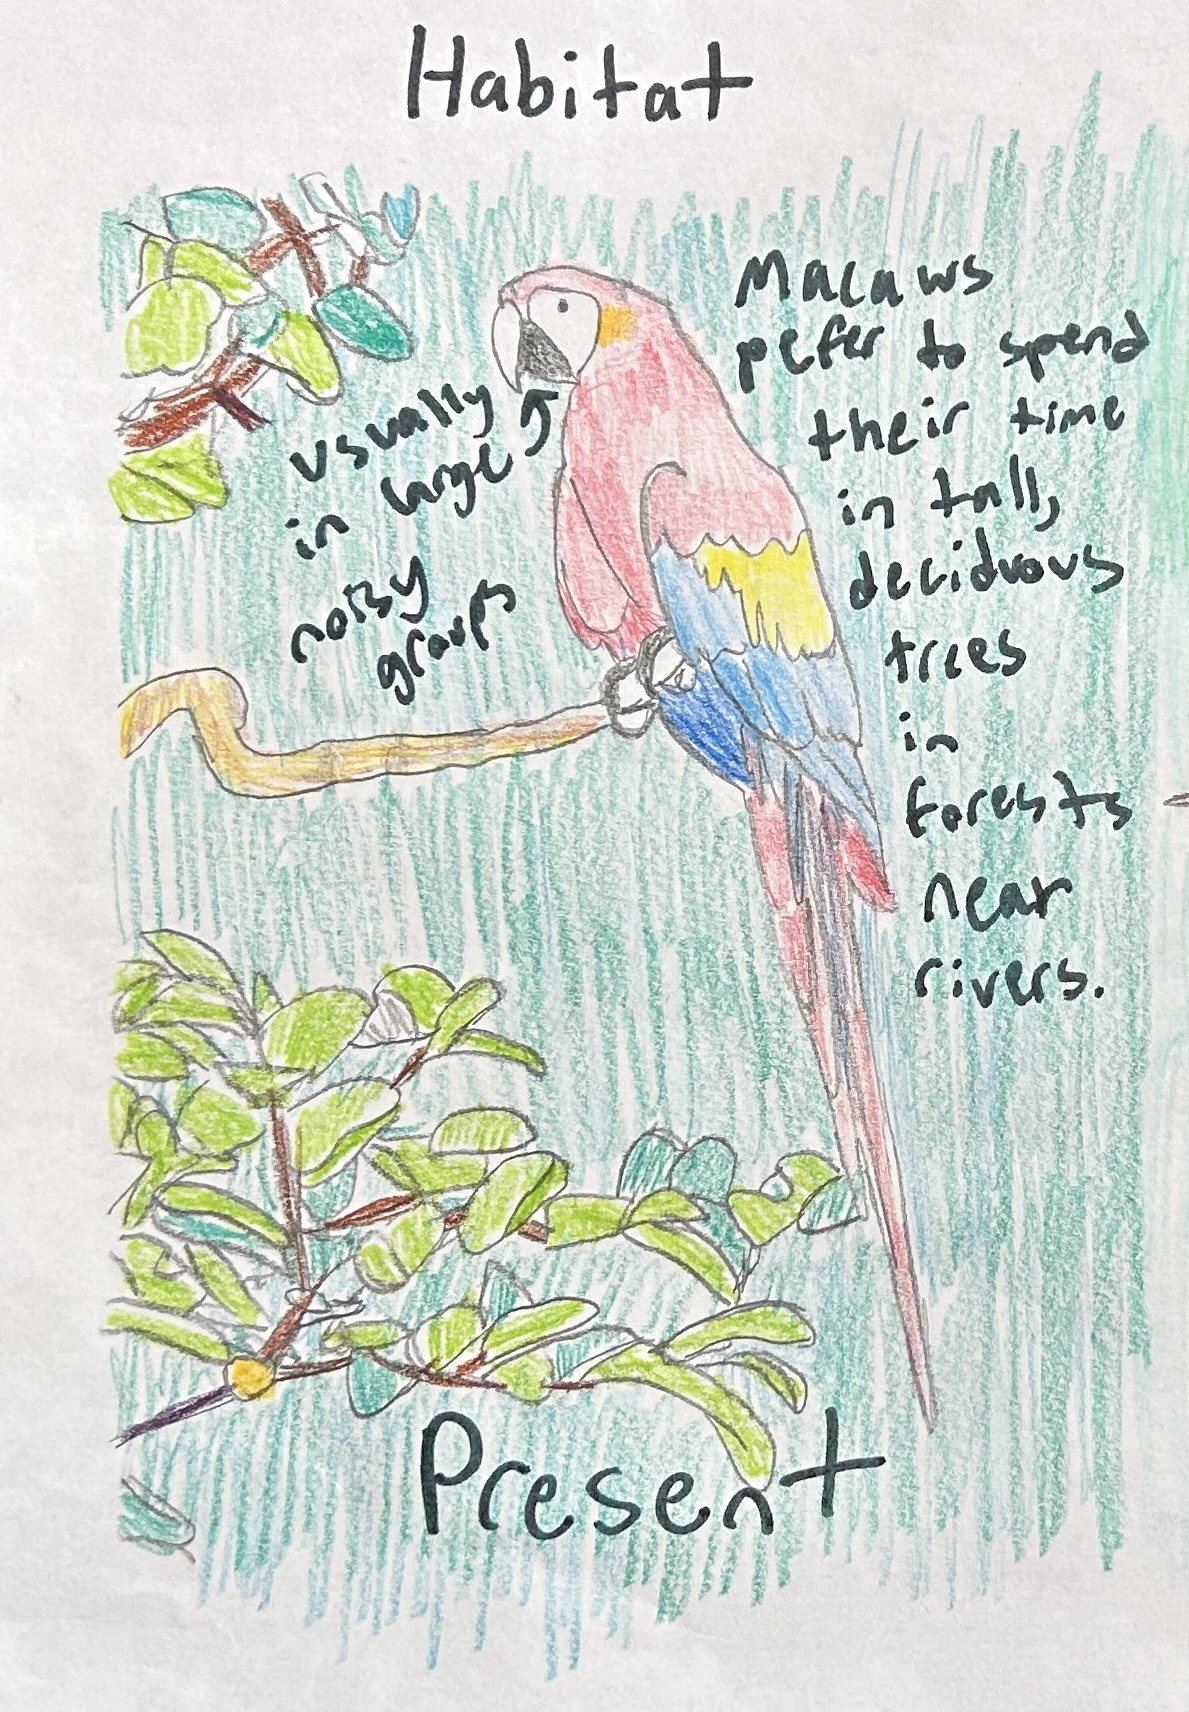 Habitat
Macaws
pefer to spend
their time
in tall,
deciduous
trees
in
forests
near
rivers.
usually
in large
noisy
groups
Present